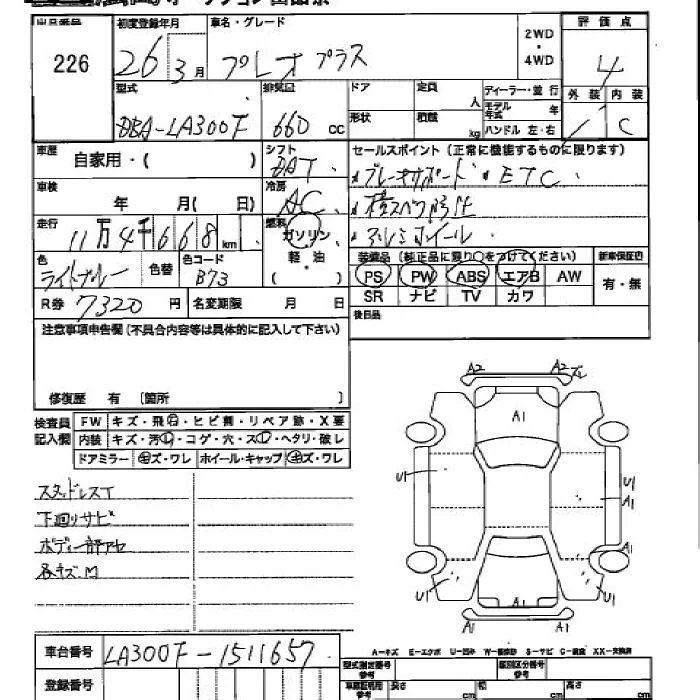 出品番号 初度登録年月 車名・グレード 2WD・4WD 評価点
226 26年 3月 プレオ プラス 4
型式 排気量 ドア 定員 人 ディーラー・並行 外装 内装
DBA-LA300F 660 cc 形状 積載 kg モデル年式 年 ハンドル 左・右 C
車歴 自家用・( ) シフト DAT セールスポイント(正常に機能するものに限ります)
ブレーキサポート ETC
車検 年 月( 日) 冷房 AC 横スベリ防止
走行 11万4千668km 燃料 ガソリン・軽油 ( ) アルミホイール
色 ライトブルー 色替 色コード B73 装備品(純正品に限り○をつけてください) 新車保証書
PS PW ABS エアB AW 有・無
R券 7320円 名変期限 月 日 SR ナビ TV カワ
注意事項申告欄(不具合内容等は具体的に記入して下さい) 後日品
修復歴 有 [箇所 ]
検査員記入欄 FW キズ・飛石・ヒビ割・リペア跡・X要
内装 キズ・汚れ・コゲ・穴・スレ・ヘタリ・破レ
ドアミラー キズ・ワレ ホイール・キャップ キズ・ワレ
スタッドレスT
下廻りサビ
ボディ一部アセ
各キズ.M
A2 A2
A1
U1 U1
A1
A1
U1 U1
A1
A-キズ E-エクボ U-凹み W-補修跡 S-サビ C-腐食 XX-交換済
車台番号 LA300F-1511657
登録番号
型式指定番号参考 類別区分番号参考
長さ cm 幅 cm 高さ cm